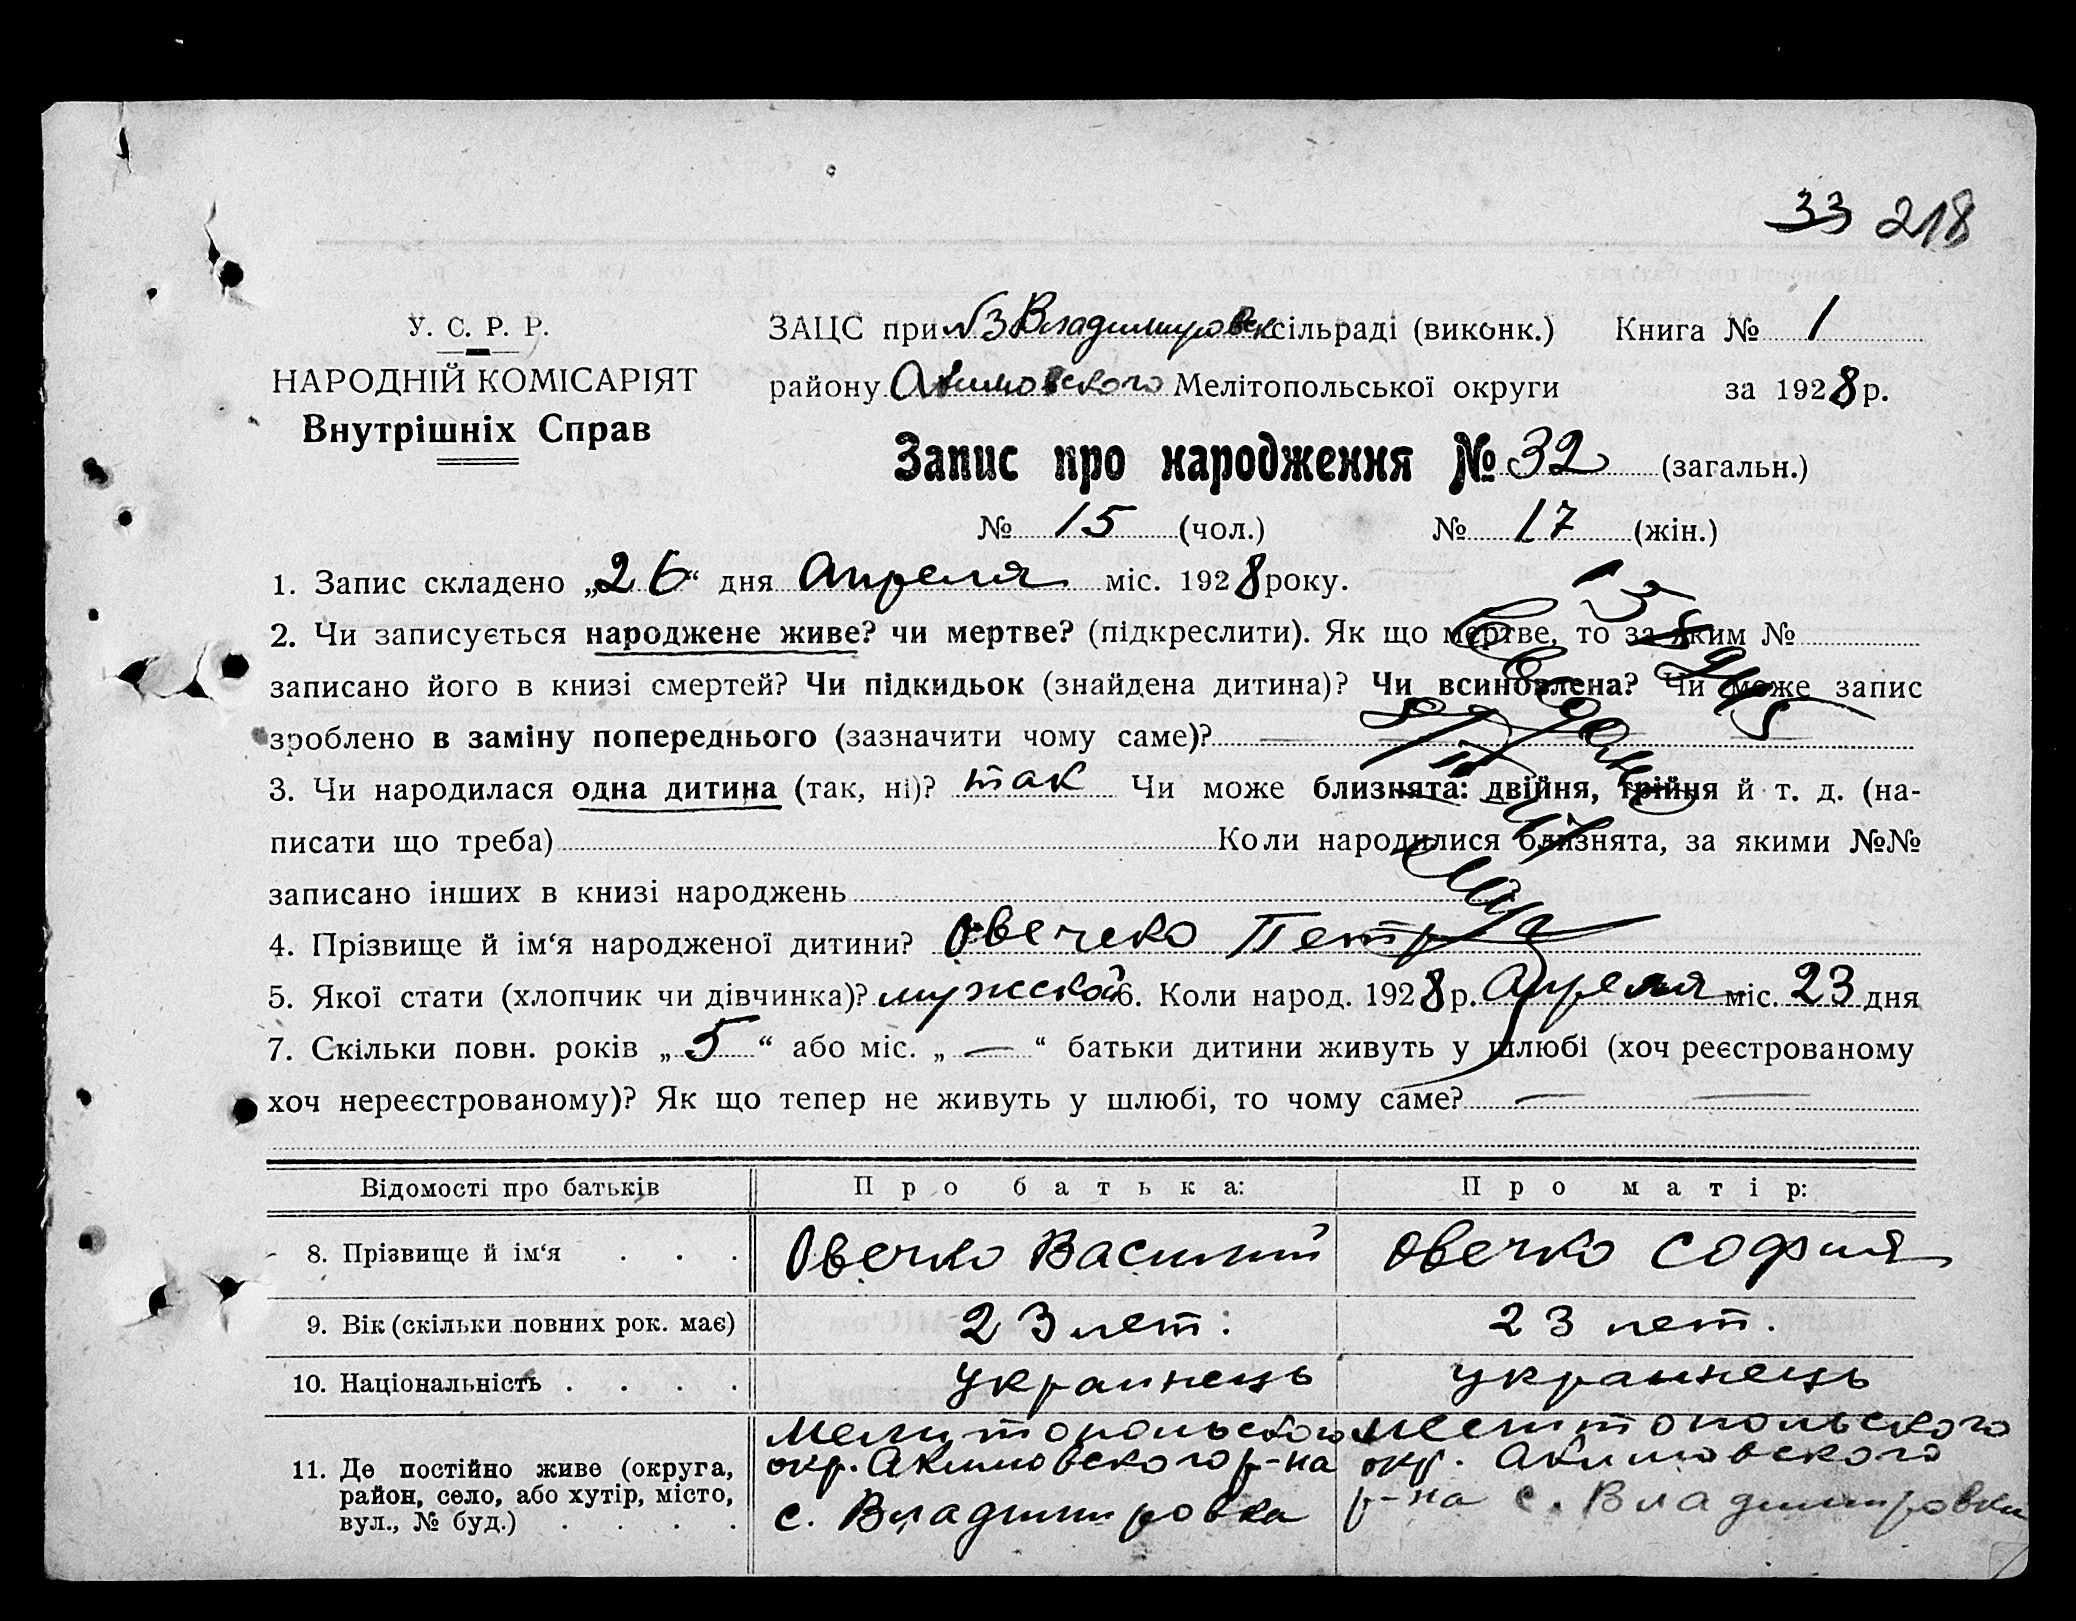 33 218
У. С. Р. Р.
НАРОДНІЙ КОМІСАРІЯТ
Внутрішніх Справ
ЗАЦС при №3 Владимировск сільраді (виконк.) Книга № 1
району Акимовского Мелітопольської округи за 1928 р.
Запис про народження № 32 (загальн.)
№ 15 (чол.) № 17 (жін.)
1. Запис складено „26“ дня Апреля міс. 1928 року.
2. Чи записується народжене живе? чи мертве? (підкреслити). Як що мертве, то за яким №
записано його в книзі смертей? Чи підкидьок (знайдена дитина)? Чи всиновлена? Чи може запис
зроблено в заміну попереднього (зазначити чому саме)?
3. Чи народилася одна дитина (так, ні)? так Чи може близнята: двійня, трійня й т. д. (на-
писати що треба) Коли народилися близнята, за якими №№
записано інших в книзі народжень
4. Прізвище й ім‘я народженої дитини? Овечко Петр
5. Якої стати (хлопчик чи дівчинка)? мужской 6. Коли народ. 1928 р. Апреля міс. 23 дня
7. Скільки повн. років „5“ або міс. „—“ батьки дитини живуть у шлюбі (хоч реєстрованому
хоч нереєстрованому)? Як що тепер не живуть у шлюбі, то чому саме? — —
Відомості про батьків Про батька: Про матір:
8. Прізвище й ім‘я . . . Овечко Василий Овечко София
9. Вік (скільки повних рок. має) 23 лет: 23 лет.
10. Національність . . . . украинець украинець
11. Де постійно живе (округа, район, село, або хутір, місто, вул., № буд.) . . . .
Мелитопольского
окр. Акимовского р-на
с. Владимировка
Мелитопольского
окр. Акимовского
р-на с. Владимировка